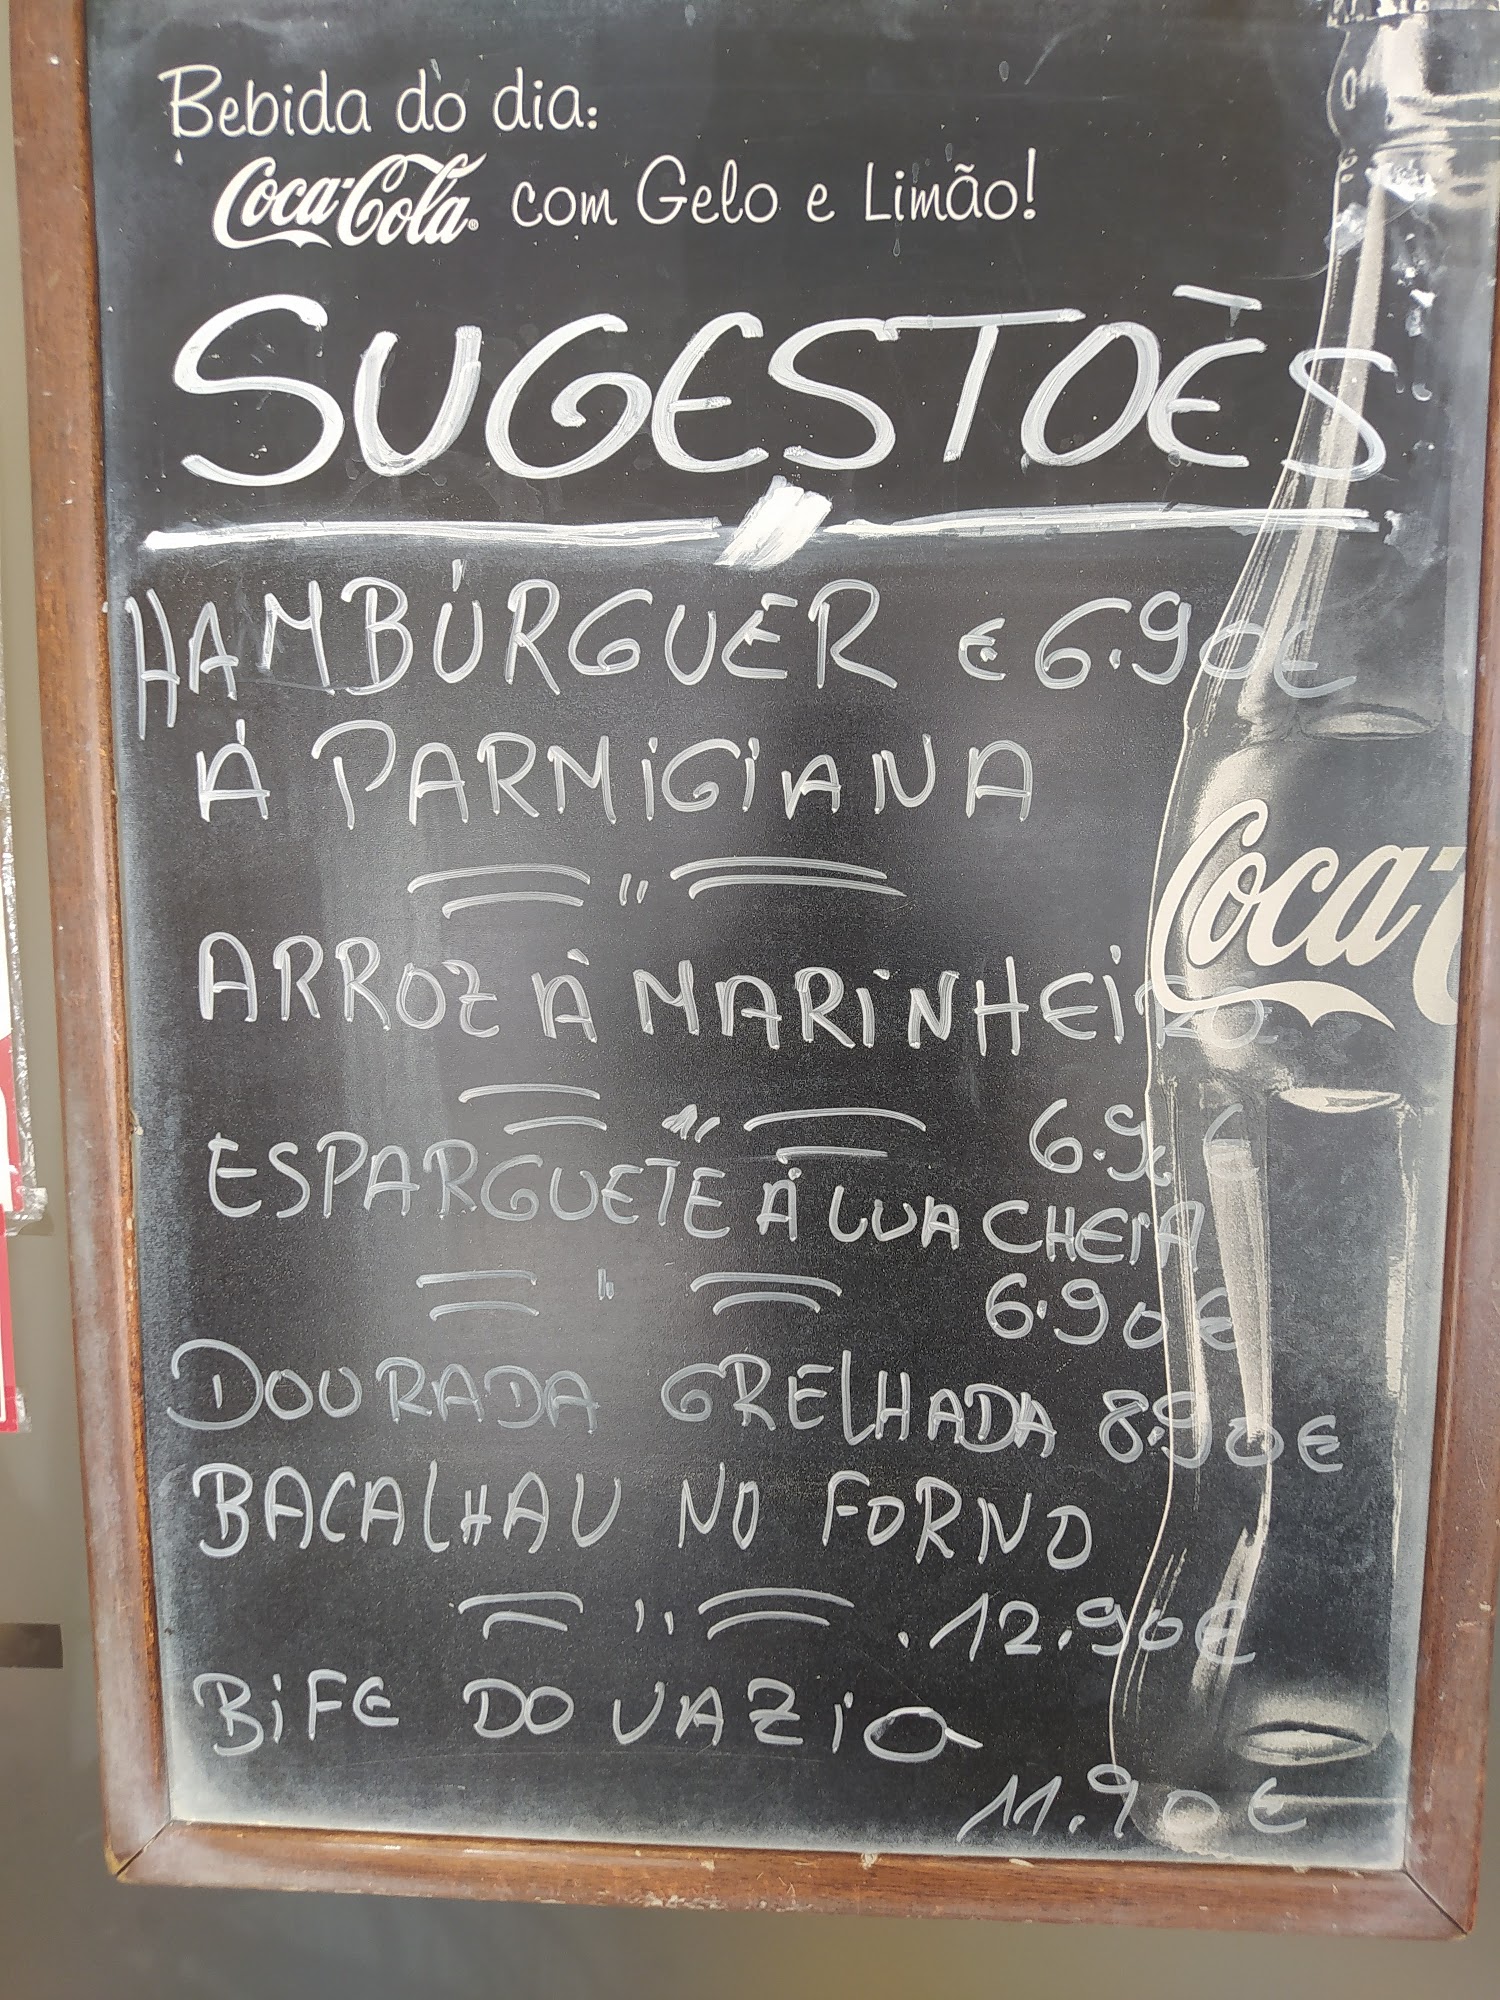 Bebida do dia:
Coca-Cola com Gelo e Limão!
SUGESTOÈS
HAMBÚRGUER € 6.90€
Á PARMIGIANA
ARROZ À MARINHEIRO
6.9 €
ESPARGUETE Á LUA CHEIA
6.90€
DOURADA GRELHADA 8.90€
BACALHAU NO FORNO
12.90€
BIFE DO VAZIO
11.90€
Coca-C